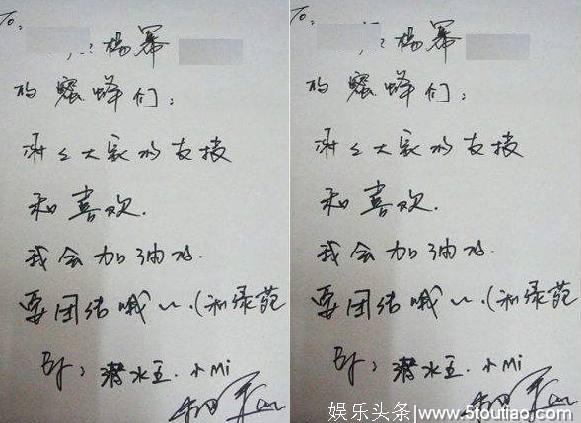 To:
杨幂
的蜜蜂们:
谢谢大家的支持
和喜欢.
我会加油的.
要团结哦~.(和绿苑
BF: 潜水王.小Mi
To:
杨幂
的蜜蜂们:
谢谢大家的支持
和喜欢.
我会加油的.
要团结哦~.(和绿苑
BF: 潜水王.小Mi
娱乐头条/www.5toutiao.com